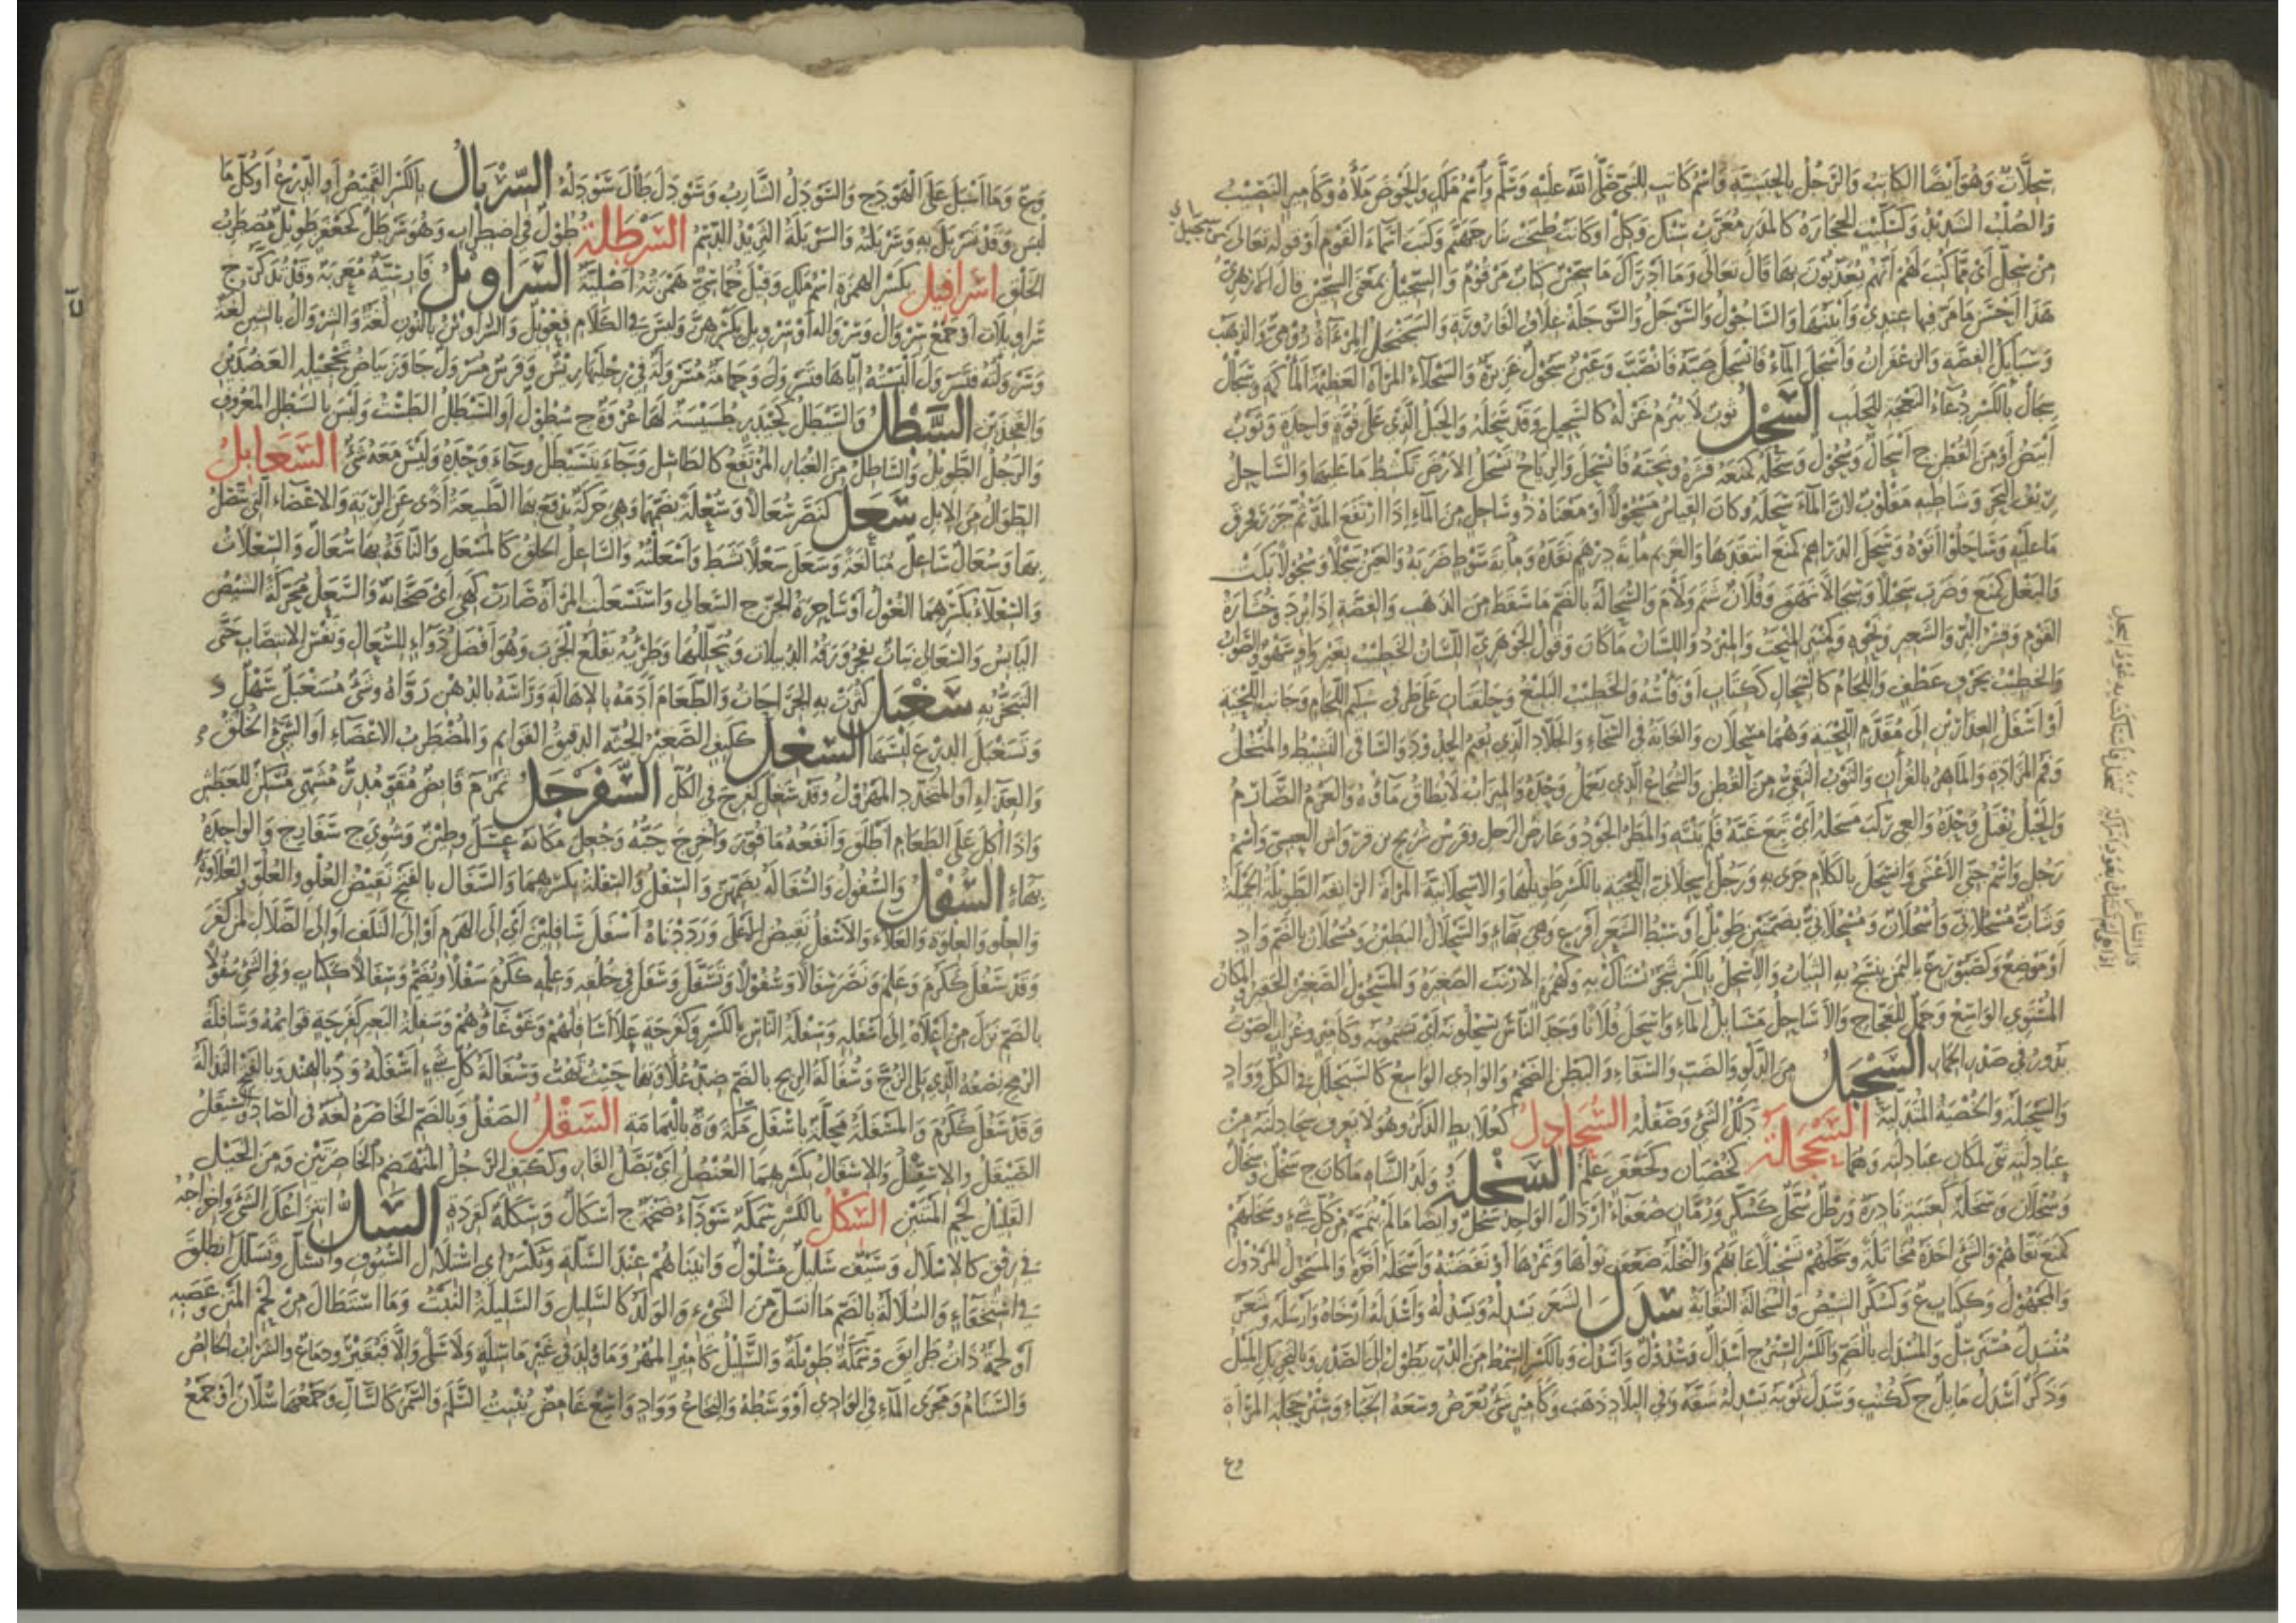 سِجِلَّاتٌ وَهُوَ أَيْضًا الكَاتِبُ وَالرَّجُلُ بِالحَبَشِيَّةِ وَاسْمُ كَاتِبٍ لِلنَّبِيِّ صَلَّى اللهُ عَلَيْهِ وَسَلَّمَ وَاسْمُ مَلَكٍ وَالحَوْضَ مَلَأَهُ وَكَأَمِيرٍ النَّصِيبُ
وَالصُّلْبُ الشَّدِيدُ وَكَسِكِّيتٍ حِجَارَةٌ كَالمَدَرِ مُعَرَّبُ سَنْگ وَگِل أَوْ كَانَتْ طُبِخَتْ بِنَارِ جَهَنَّمَ وَكُتِبَ أَسْمَاءُ القَوْمِ أَوْ قَوْلُهُ تَعَالَى مِنْ سِجِّيلٍ
مِنْ سِجِلٍّ أَيْ مِمَّا كُتِبَ لَهُمْ أَنَّهُمْ يُعَذَّبُونَ بِهَا قَالَ تَعَالَى وَمَا أَدْرَاكَ مَا سِجِّينٌ كِتَابٌ مَرْقُومٌ وَالسِّجِّيلُ بِمَعْنَى السِّجِّينِ قَالَ الأَزْهَرِيُّ
هَذَا أَحْسَنُ مَا مَرَّ فِيهَا عِنْدِي وَأَبْيَنُهَا وَالسَّاجُولُ وَالسَّوْجَلُ وَالسَّوْجَلَةُ غِلَافُ القَارُورَةِ وَالسَّجَنْجَلُ المِرْآةُ رُومِيٌّ وَالذَّهَبُ
وَسَبَائِكُ الفِضَّةِ وَالزَّعْفَرَانُ وَأَسْجَلَ المَاءَ فَانْسَجَلَ صَبَّهُ فَانْصَبَّ وَعَيْنٌ سَجُولٌ غَزِيرَةٌ وَالسَّجْلَاءُ المَرْأَةُ العَظِيمَةُ المَأْكَمَةِ وَسِجَالْ
سِجَالْ بِالكَسْرِ دُعَاءُ النَّعْجَةِ لِلْحَلَبِ السَّحْلُ ثَوْبٌ لَا يُبْرَمُ غَزْلُهُ كَالسَّحِيلِ وَقَدْ سَحَلَهُ وَالحَبْلُ الَّذِي عَلَى قُوَّةٍ وَاحِدَةٍ وَثَوْبٌ
أَبْيَضُ أَوْ مِنَ القُطْنِ ج أَسْحَالٌ وَسُحُولٌ وَسَحَلَهُ كَمَنَعَهُ قَشَرَهُ وَنَحَتَهُ فَانْسَحَلَ وَالرِّيَاحُ تَسْحَلُ الأَرْضَ تَكْشِطُ مَا عَلَيْهَا وَالسَّاحِلُ
رِيفُ البَحْرِ وَشَاطِئُهُ مَقْلُوبٌ لِأَنَّ المَاءَ سَحَلَهُ وَكَانَ القِيَاسُ مَسْحُولًا أَوْ مَعْنَاهُ ذُو سَاحِلٍ مِنَ المَاءِ إِذَا ارْتَفَعَ المَدُّ ثُمَّ جَزَرَ فَجَرَفَ
مَا عَلَيْهِ وَسَاحَلُوا أَتَوْهُ وَسَحَلَ الدَّرَاهِمَ كَمَنَعَ انْتَقَدَهَا وَالغَرِيمَ مِائَةَ دِرْهَمٍ نَقَدَهُ وَمِائَةَ سَوْطٍ ضَرَبَهُ وَالعَيْنُ سَحْلًا وَسُحُولًا بَكَتْ
وَالبَغْلُ كَمَنَعَ وَضَرَبَ سَحِيلًا وَسُحَالًا نَهَقَ وَفُلَانٌ شَتَمَ وَلَامَ وَالسُّحَالَةُ بِالضَّمِّ مَا سَقَطَ مِنَ الذَّهَبِ وَالفِضَّةِ إِذَا بُرِدَ وَخُشَارَةُ
القَوْمِ وَقِشْرُ البُرِّ وَالشَّعِيرِ وَنَحْوِهِ وَكَمِنْبَرٍ المِنْحَتُ وَالمِبْرَدُ وَاللِّسَانُ مَا كَانَ وَقَوْلُ الجَوْهَرِيِّ اللِّسَانُ الخَطِيبُ بِغَيْرِ وَاوٍ سَهْوٌ وَالصَّوَابُ
وَالخَطِيبُ بِحَرْفِ عَطْفٍ وَاللِّجَامُ كَالسِّحَالِ كَكِتَابٍ أَوْ فَأْسُهُ وَالخَطِيبُ البَلِيغُ وَحَلْقَتَانِ عَلَى طَرَفَيْ شَكِيمِ اللِّجَامِ وَجَانِبُ اللِّحْيَةِ
أَوْ أَسْفَلُ العِذَارَيْنِ إِلَى مُقَدَّمِ اللِّحْيَةِ وَهُمَا مِسْحَلَانِ وَالغَايَةُ فِي السَّخَاءِ وَالجَلَّادُ الَّذِي يُقِيمُ الحُدُودَ وَالسَّاقِي النَّشِيطُ وَالمُنْخُلُ
وَفَمُ المَزَادَةِ وَالمَاهِرُ بِالقُرْآنِ وَالثَّوْبُ النَّقِيُّ مِنَ القُطْنِ وَالشُّجَاعُ الَّذِي يَعْمَلُ وَحْدَهُ وَالمِيزَابُ لَا يُطَاقُ مَاؤُهُ وَالعَزْمُ الصَّارِمُ
وَالحَبْلُ يُفْتَلُ وَحْدَهُ وَالغَيُّ رَكِبَ مِسْحَلَهُ أَيْ تَبِعَ غَيَّهُ فَلَمْ يَنْتَهِ وَالمَطَرُ الجَوْدُ وَعَارِضُ الرَّجُلِ وَفَرَسُ شُرَيْحِ بْنِ قِرْوَاشٍ العَبْسِيِّ وَاسْمُ
رَجُلٍ وَاسْمُ جِنِّيِّ الأَعْشَى وَانْسَحَلَ بِالكَلَامِ جَرَى بِهِ وَرَجُلٌ إِسْحِلَانِيُّ اللِّحْيَةِ بِالكَسْرِ طَوِيلُهَا وَالإِسْحِلَانِيَّةُ المَرْأَةُ الرَّائِعَةُ الطَّوِيلَةُ الجَمِيلَةُ
وَشَابٌّ مُسْحُلَانِيٌّ وَأُسْحُلَانٌ وَمُسْحُلَانِيٌّ بِضَمَّتَيْنِ طَوِيلٌ أَوْ سَبْطُ الشَّعَرِ أَفْرَعُ وَهِيَ بِهَاءٍ وَالسِّحْلَالُ البَطِينُ وَمُسْحُلَانُ بِالضَّمِّ وَادٍ
أَوْ مَوْضِعٌ وَكَصَبُورٍ ع بِاليَمَنِ يُنْسَجُ بِهِ الثِّيَابُ وَالإِسْحِلُ بِالكَسْرِ شَجَرٌ يُسْتَاكُ بِهِ وَكَهُمَزَةٍ الأَرْنَبُ الصَّغِيرَةُ وَالمَسْحُولُ الصَّغِيرُ الحَقِيرُ وَالمَكَانُ
المُسْتَوِي الوَاسِعُ وَجَمَلٌ لِلْعَجَّاجِ وَالأَسَاحِلُ مَسَايِلُ المَاءِ وَأَسْحَلَ فُلَانًا وَجَدَ النَّاسَ يَسْحَلُونَهُ أَيْ يَشْتُمُونَهُ وَكَأَمِيرٍ وَغُرَابٍ الصَّوْتُ
يَدُورُ فِي صَدْرِ الحِمَارِ السَّحْبَلُ مِنَ الدَّلْوِ وَالضَّبِّ وَالسِّقَاءِ وَالبَطْنِ الضَّخْمُ وَالوَادِي الوَاسِعُ كَالسَّبَحْلَلِ فِي الكُلِّ وَوَادٍ
وَالسَّحْبَلَةُ وَالخُصْيَةُ المُتَدَلِّيَةُ السَّحْجَلَةُ دَلْكُ الشَّيْءِ وَصَقْلُهُ السُّحَادِلُ كَعُلَابِطٍ الذَّكَرُ وَهُوَ لَا يَعْرِفُ سُحَادِلَيْهِ مِنْ
عُنَادِلَيْهِ ثُنِّيَ لِمَكَانِ عُنَادِلَيْهِ وَهُمَا الخُصْيَتَانِ وَكَجَعْفَرٍ عَلَمٌ السَّخْلَةُ وَلَدُ الشَّاةِ مَا كَانَ ج سَخْلٌ وَسِخَالٌ
وَسُخْلَانٌ وَسِخَلَةٌ كَعِنَبَةٍ نَادِرَةٌ وَرِجَالٌ سُخَّلٌ كَسُكَّرٍ وَرُمَّانٍ ضُعَفَاءُ أَرْذَالٌ الوَاحِدُ سَخْلٌ وَأَيْضًا مَا لَمْ يُتَمَّمْ مِنْ كُلِّ شَيْءٍ وَسَخَلَهُمْ
كَمَنَعَ نَفَاهُمْ وَالشَّيْءَ أَخَذَهُ مُخَاتَلَةً وَسَخَّلَهُمْ تَسْخِيلًا عَابَهُمْ وَالنَّخْلَةُ ضَعُفَ نَوَاهَا وَتَمْرُهَا أَوْ نَفَضَتْهُ وَأَسْخَلَهُ أَخَّرَهُ وَالمَسْخُولُ المَرْذُولُ
وَالمَجْهُولُ وَكَكِتَابٍ ع وَكَسُكَّرٍ الشِّيصُ وَالسُّخَالَةُ النُّفَايَةُ سَدَلَ الشَّعَرَ يَسْدِلُهُ وَيَسْدُلُهُ وَأَسْدَلَهُ أَرْخَاهُ وَأَرْسَلَهُ وَشَعَرٌ
مُنْسَدِلٌ مُسْتَرْسِلٌ وَالسُّدْلُ بِالضَّمِّ وَالكَسْرِ السِّتْرُ ج أَسْدَالٌ وَسُدُولٌ وَأَسْدُلٌ وَبِالكَسْرِ السِّمْطُ مِنَ الدُّرِّ يَطُولُ إِلَى الصَّدْرِ وَبِالتَّحْرِيكِ المَيَلُ
وَذَكَرٌ أَسْدَلُ مَائِلٌ ج كَكُتُبٍ وَسَدَلَ ثَوْبَهُ يَسْدِلُهُ شَقَّهُ وَفِي البِلَادِ ذَهَبَ وَكَأَمِيرٍ شَيْءٌ يُعَرَّضُ وَسَعَةُ الخِبَاءِ وَسِتْرُ حَجَلَةِ المَرْأَةِ
وع
وَع وَمَا أُسْبِلَ عَلَى الهَوْدَجِ وَالسَّوْدَلُ الشَّارِبُ وَسَوْدَلَ طَالَ سَوْدَلُهُ السِّرْبَالُ بِالكَسْرِ القَمِيصُ أَوِ الدِّرْعُ أَوْ كُلُّ مَا
لُبِسَ وَقَدْ تَسَرْبَلَ بِهِ وَسَرْبَلْتُهُ وَالسَّرْبَلَةُ الثَّرِيدُ الدَّسِمُ السَّرْطَلَةُ طُولٌ فِي اضْطِرَابٍ وَهُوَ سَرْطَلٌ كَجَعْفَرٍ طَوِيلٌ مُضْطَرِبُ
الخَلْقِ إِسْرَافِيلُ بِكَسْرِ الهَمْزَةِ اسْمُ مَلَكٍ وَقِيلَ خُمَاسِيٌّ هَمْزَتُهُ أَصْلِيَّةٌ السَّرَاوِيلُ فَارِسِيَّةٌ مُعَرَّبَةٌ وَقَدْ تُذَكَّرُ ج
سَرَاوِيلَاتٌ أَوْ جَمْعُ سِرْوَالٍ وَسِرْوَالَةٍ أَوْ سِرْوِيلٍ بِكَسْرِهِنَّ وَلَيْسَ فِي الكَلَامِ فِعْوِيلٌ وَالسَّرَاوِينُ بِالنُّونِ لُغَةٌ وَالشِّرْوَالُ بِالشِّينِ لُغَةٌ
وَسَرْوَلْتُهُ فَتَسَرْوَلَ أَلْبَسْتُهُ إِيَّاهَا فَتَسَرْوَلَ وَحَمَامَةٌ مُسَرْوَلَةٌ فِي رِجْلَيْهَا رِيشٌ وَفَرَسٌ مُسَرْوَلٌ جَاوَزَ بَيَاضُ تَحْجِيلِهِ العَضُدَيْنِ
وَالفَخِذَيْنِ السَّطْلُ وَالسَّيْطَلُ كَحَيْدَرٍ طُسَيْسَةٌ لَهَا عُرْوَةٌ ج سُطُولٌ أَوِ السَّيْطَلُ الطَّسْتُ وَلَيْسَ بِالسَّطْلِ المَعْرُوفِ
وَالرَّجُلُ الطَّوِيلُ وَالسَّاطِلُ مِنَ الغُبَارِ المُرْتَفِعُ كَالطَّاسِلِ وَجَاءَ يَتَسَيْطَلُ وَجَاءَ وَحْدَهُ وَلَيْسَ مَعَهُ شَيْءٌ السَّعَابِلُ
الطِّوَالُ مِنَ الإِبِلِ سَعَلَ كَنَصَرَ سُعَالًا وَسُعْلَةً بِضَمِّهِمَا وَهِيَ حَرَكَةٌ تَدْفَعُ بِهَا الطَّبِيعَةُ أَذًى عَنِ الرِّئَةِ وَالأَعْضَاءِ الَّتِي تَتَّصِلُ
بِهَا وَسُعَالٌ سَاعِلٌ مُبَالَغَةٌ وَسَعِلَ سَعَلًا نَشِطَ وَأَسْعَلْتُهُ وَالسَّاعِلُ الحَلْقُ كَالمَسْعَلِ وَالنَّاقَةُ بِهَا سُعَالٌ وَالسِّعْلَاةُ
وَالسِّعْلَاءُ بِكَسْرِهِمَا الغُولُ أَوْ سَاحِرَةُ الجِنِّ ج السَّعَالِي وَاسْتَسْعَلَتِ المَرْأَةُ صَارَتْ كَهِيَ أَيْ صَخَّابَةً وَالسَّعَلُ مُحَرَّكَةً الشِّيصُ
اليَابِسُ وَالسُّعَالَى نَبَاتٌ يُفَجِّرُ وَرَقُهُ الدُّبَيْلَاتِ وَيُحَلِّلُهَا وَطَرِيُّهُ يَقْلَعُ الجَرَبَ وَهُوَ أَفْضَلُ دَوَاءٍ لِلسُّعَالِ وَنَفَسِ الانْتِصَابِ حَتَّى
التَّبَخُّرُ بِهِ سَغْبَلَ كَثُرَتْ بِهِ الجِرَاحَاتُ وَالطَّعَامَ أَدَمَهُ بِالإِهَالَةِ وَرَأْسَهُ بِالدُّهْنِ رَوَّاهُ وَشَيْءٌ مُسَغْبَلٌ سَهْلٌ
وَتَسَغْبَلَ الدِّرْعَ لَبِسَهَا السَّغِلُ كَكَتِفٍ الصَّغِيرُ الجُثَّةِ الدَّقِيقُ القَوَائِمِ وَالمُضْطَرِبُ الأَعْضَاءِ أَوِ السَّيِّئُ الخُلُقِ
وَالغِذَاءِ أَوِ المُتَخَدِّدُ المَهْزُولُ وَقَدْ سَغِلَ كَفَرِحَ فِي الكُلِّ السَّفَرْجَلُ ثَمَرٌ م قَابِضٌ مُقَوٍّ مُدِرٌّ مُشَهٍّ مُسَكِّنٌ لِلْعَطَشِ
وَإِذَا أُكِلَ عَلَى الطَّعَامِ أَطْلَقَ وَأَنْفَعُهُ مَا قُوِّرَ وَأُخْرِجَ حَبُّهُ وَجُعِلَ مَكَانَهُ عَسَلٌ وَطُيِّنَ وَشُوِيَ ج سَفَارِجُ وَالوَاحِدَةُ
بِهَاءٍ السُّفْلُ وَالسُّفُولُ وَالسُّفَالَةُ بِضَمِّهِنَّ وَالسِّفْلُ وَالسِّفْلَةُ بِكَسْرِهِمَا وَالسَّفَالُ بِالفَتْحِ نَقِيضُ العُلْوِ وَالعُلُوِّ وَالعُلَاوَةِ
وَالعِلْوِ وَالعِلْوَةِ وَالعَلَاءِ وَالأَسْفَلُ نَقِيضُ الأَعْلَى وَرَدَدْنَاهُ أَسْفَلَ سَافِلِينَ أَيْ إِلَى الهَرَمِ أَوْ إِلَى التَّلَفِ أَوْ إِلَى الضَّلَالِ لِمَنْ كَفَرَ
وَقَدْ سَفُلَ كَكَرُمَ وَعَلِمَ وَنَصَرَ سَفَالًا وَسُفُولًا وَتَسَفَّلَ وَسَفَلَ فِي خُلُقِهِ وَعِلْمِهِ كَكَرُمَ سَفْلًا وَيُضَمُّ وَسِفَالًا كَكِتَابٍ وَفِي الشَّيْءِ سُفُولًا
بِالضَّمِّ نَزَلَ مِنْ أَعْلَاهُ إِلَى أَسْفَلِهِ وَسِفْلَةُ النَّاسِ بِالكَسْرِ وَكَفَرِحَةٍ أَسَافِلُهُمْ وَغَوْغَاؤُهُمْ وَسَفِلَةُ البَعِيرِ كَفَرِحَةٍ قَوَائِمُهُ وَسَافِلَةُ
الرُّمْحِ نِصْفُهُ الَّذِي يَلِي الزُّجَّ وَسُفَالَةُ الرِّيحِ بِالضَّمِّ ضِدُّ عُلَاوَتِهَا حَيْثُ تَهُبُّ وَسُفَالَةُ كُلِّ شَيْءٍ أَسْفَلُهُ وَد بِالهِنْدِ وَبِالفَتْحِ النَّذَالَةُ
وَقَدْ سَفُلَ كَكَرُمَ وَالمَسْفَلَةُ مَحَلَّةٌ بِأَسْفَلِ مَكَّةَ وَة بِاليَمَامَةِ السَّقْلُ الصَّقْلُ وَبِالضَّمِّ الخَاصِرَةُ لُغَةٌ فِي الصَّادِ وَالسَّيْقَلُ
الصَّيْقَلُ وَالإِسْقِيلُ وَالإِسْقَالُ بِكَسْرِهِمَا العُنْصُلُ أَيْ بَصَلُ الفَارِ وَكَكَتِفٍ الرَّجُلُ المُنْهَضِمُ الخَاصِرَتَيْنِ وَمِنَ الخَيْلِ
القَلِيلُ لَحْمِ المَتْنَيْنِ السِّكْلُ بِالكَسْرِ سَمَكَةٌ سَوْدَاءُ ضَخْمَةٌ ج أَسْكَالٌ وَسِكَلَةٌ كَقِرَدَةٍ السَّلُّ انْتِزَاعُكَ الشَّيْءَ وَإِخْرَاجُهُ
فِي رِفْقٍ كَالاسْتِلَالِ وَسَيْفٌ سَلِيلٌ مَسْلُولٌ وَأَتَيْنَاهُمْ عِنْدَ السَّلَّةِ وَيُكْسَرُ أَيِ اسْتِلَالِ السُّيُوفِ وَانْسَلَّ وَتَسَلَّلَ انْطَلَقَ
فِي اسْتِخْفَاءٍ وَالسُّلَالَةُ بِالضَّمِّ مَا انْسَلَّ مِنَ الشَّيْءِ وَالوَلَدُ كَالسَّلِيلِ وَالسَّلِيلَةُ البِنْتُ وَمَا اسْتَطَالَ مِنْ لَحْمِ المَتْنِ وَعَصَبَةٌ
أَوْ لَحْمَةٌ ذَاتُ طَرَائِقَ وَسَمَكَةٌ طَوِيلَةٌ وَالسَّلِيلُ كَأَمِيرٍ المُهْرُ وَمَا وُلِدَ فِي غَيْرِ مَاسِكَةٍ وَلَا سَلًى وَإِلَّا فَبَقِيرٌ وَدِمَاغُ وَالشَّرَابُ الخَالِصُ
وَالسَّنَامُ وَمَجْرَى المَاءِ فِي الوَادِي أَوْ وَسَطُهُ وَالنُّخَاعُ وَوَادٍ وَاسِعٌ غَامِضٌ يُنْبِتُ السَّلَمَ وَالسَّمُرَ كَالسَّالِّ وَجَمْعُهُمَا سُلَّانٌ أَوْ جَمْعُ